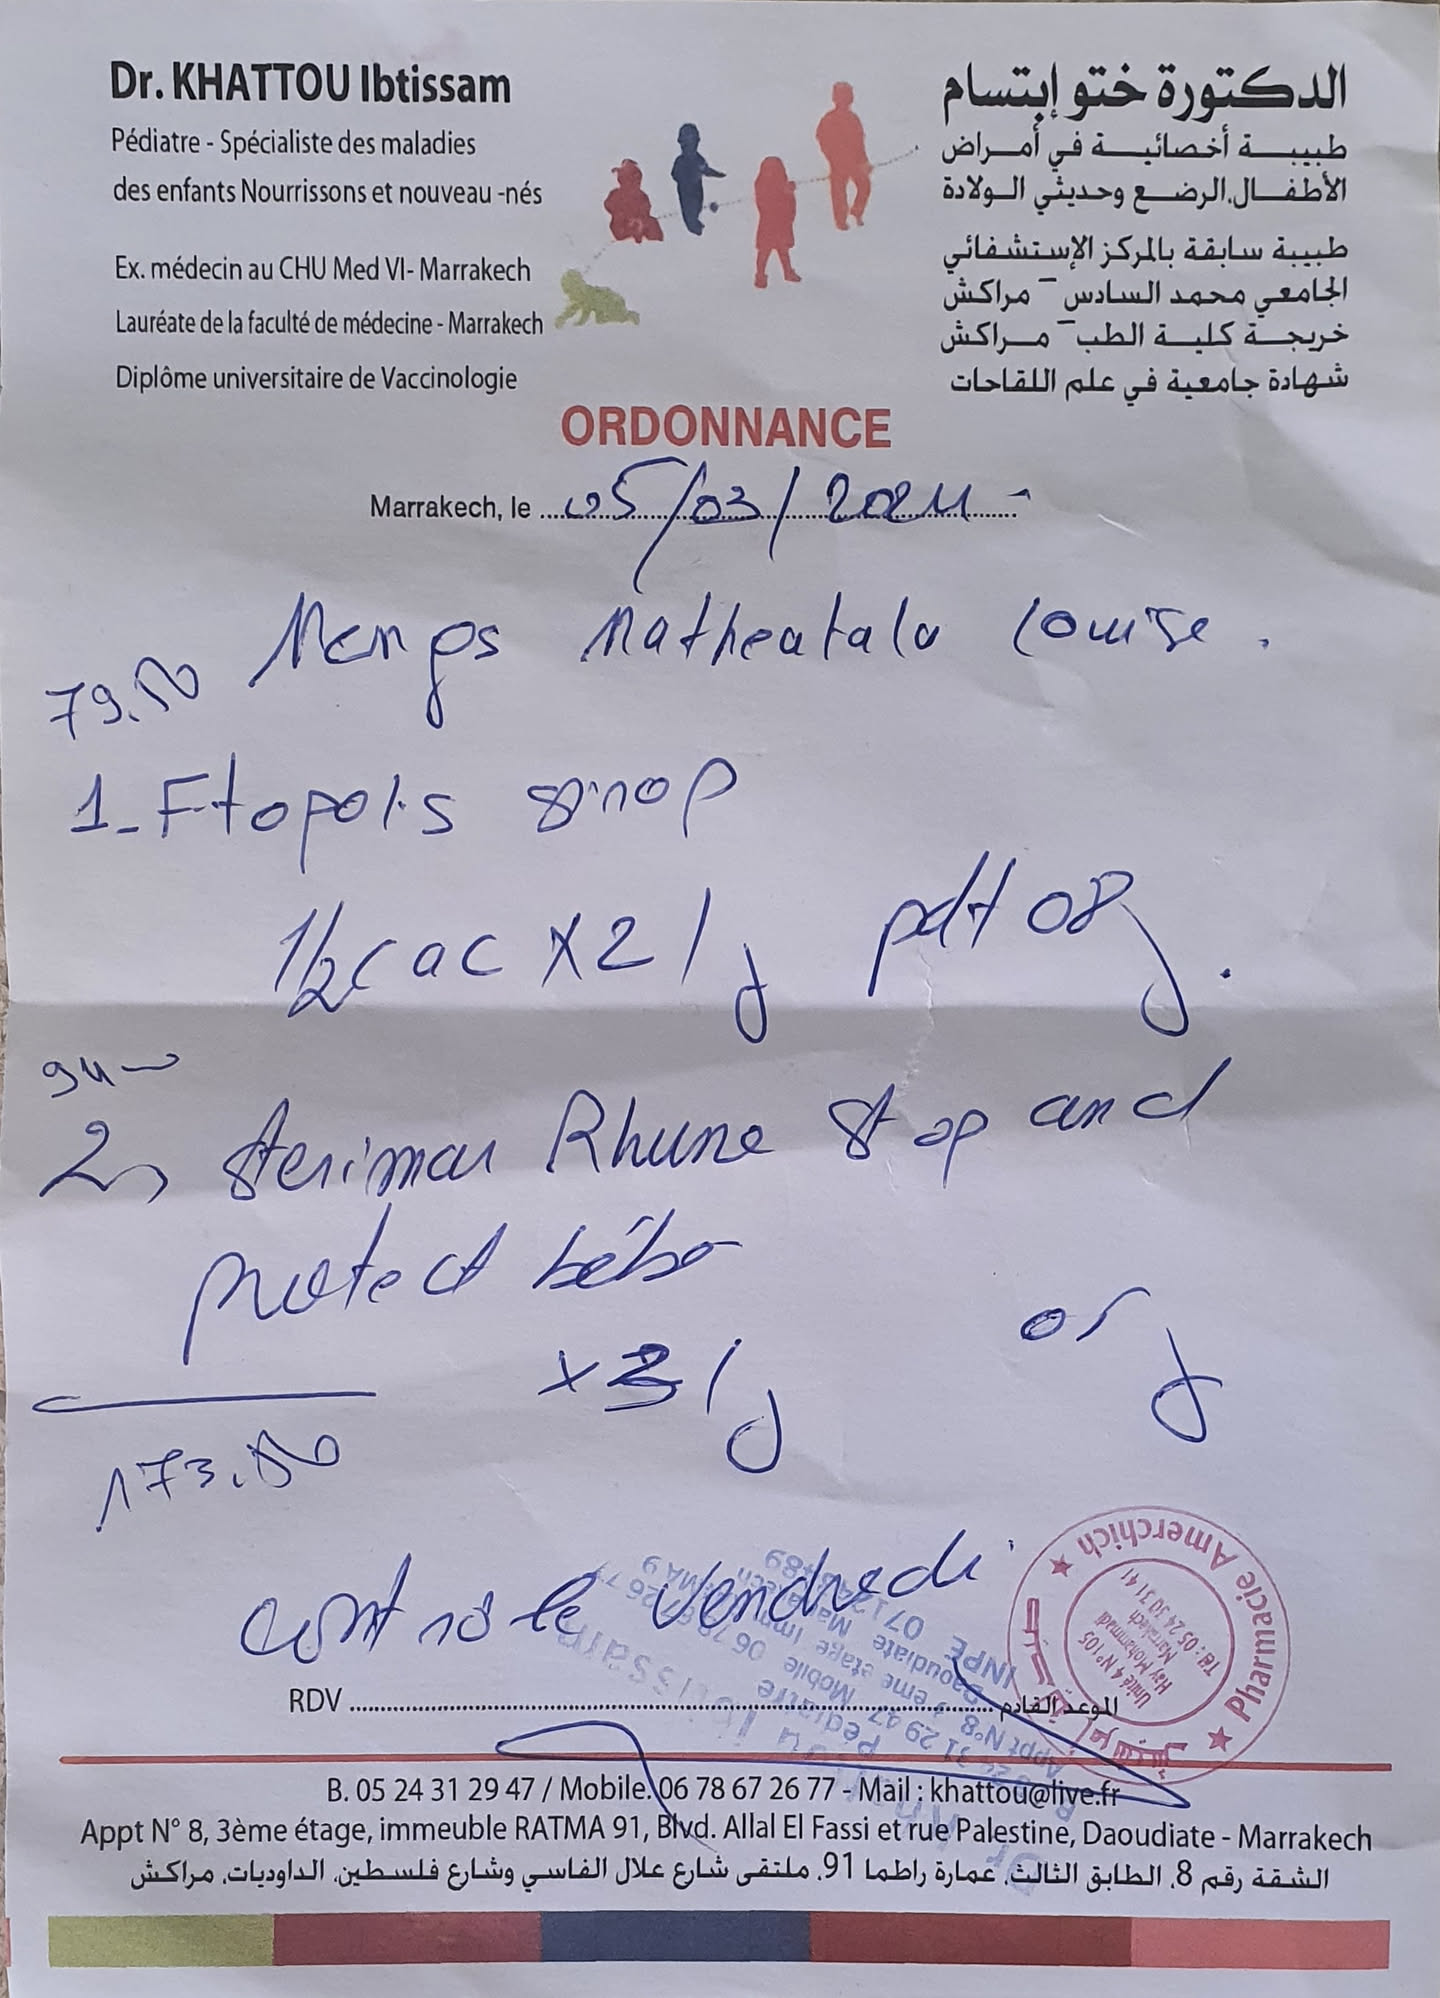 Dr. KHATTOU Ibtissam
Pédiatre - Spécialiste des maladies
des enfants Nourrissons et nouveau -nés
Ex. médecin au CHU Med VI- Marrakech
Lauréate de la faculté de médecine - Marrakech
Diplôme universitaire de Vaccinologie
الدكتورة ختو إبتسام
طبيبة أخصائية في أمراض
الأطفال.الرضع وحديثي الولادة
طبيبة سابقة بالمركز الإستشفائي
الجامعي محمد السادس - مراكش
خريجة كلية الطب - مراكش
شهادة جامعية في علم اللقاحات
ORDONNANCE
Marrakech, le 05/03/2024
Louise.
79.80
1_Ftopolis sirop
1/2 cac x2/j pdt 08j.
94
2) Sterimar Rhume Stop and
protect bébé
x3/j
173.80
controle Vendredi
Pharmacie Amerchich
Unité 4 N° 105
Hay Mohammadi
Marrakech
Tél: 05 24 30 71 41
RDV الموعد القادم
B. 05 24 31 29 47 / Mobile. 06 78 67 26 77 - Mail : khattou@live.fr
Appt N° 8, 3ème étage, immeuble RATMA 91, Blvd. Allal El Fassi et rue Palestine, Daoudiate - Marrakech
الشقة رقم 8. الطابق الثالث. عمارة راطما 91. ملتقى شارع علال الفاسي وشارع فلسطين. الداوديات. مراكش